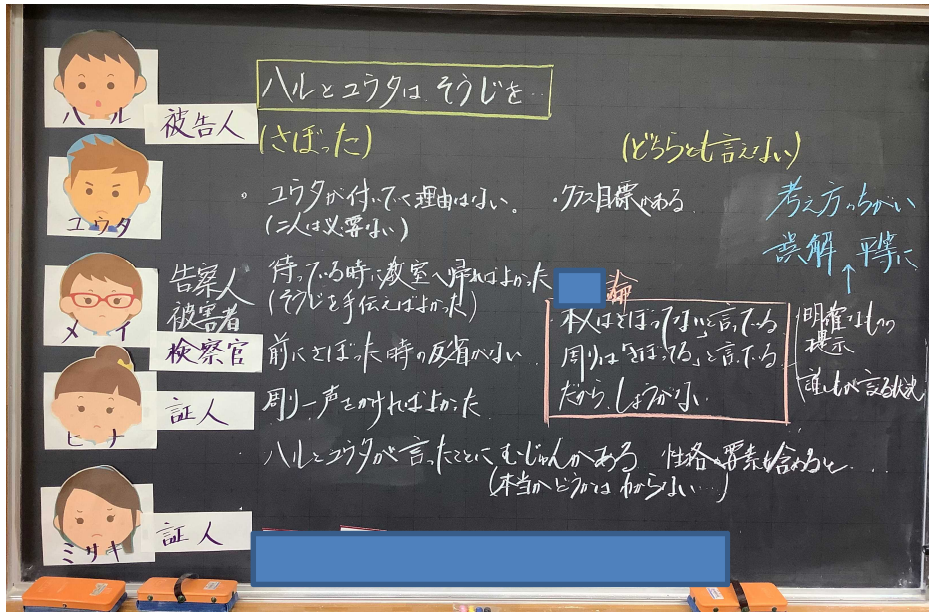 ハル
被告人
ユウタ
メイ
告察人
被害者
検察官
ヒナ
証人
ミサキ
証人
ハルとユウタは、そうじを…
(さぼった)
。ユウタが付いてく理由はない。
(二人は必要ない)
待っている時に教室へ帰ればよかった
(そうじを手伝えばよかった)
前にさぼった時の反省がない
周り一声をかければよかった
ハルとユウタが言ったことにむじゅんがある 性格や要素も含めると…
(本当かどうかはわからない…)
(どちらとも言えない)
・クラス目標がある
論
本人は「さぼってない」と言っている
周りは「さぼってる」と言ってる
だから、しょうがない
考え方のちがい
誤解 平等に
↑
明確なものの
提示
誰もが言える状況